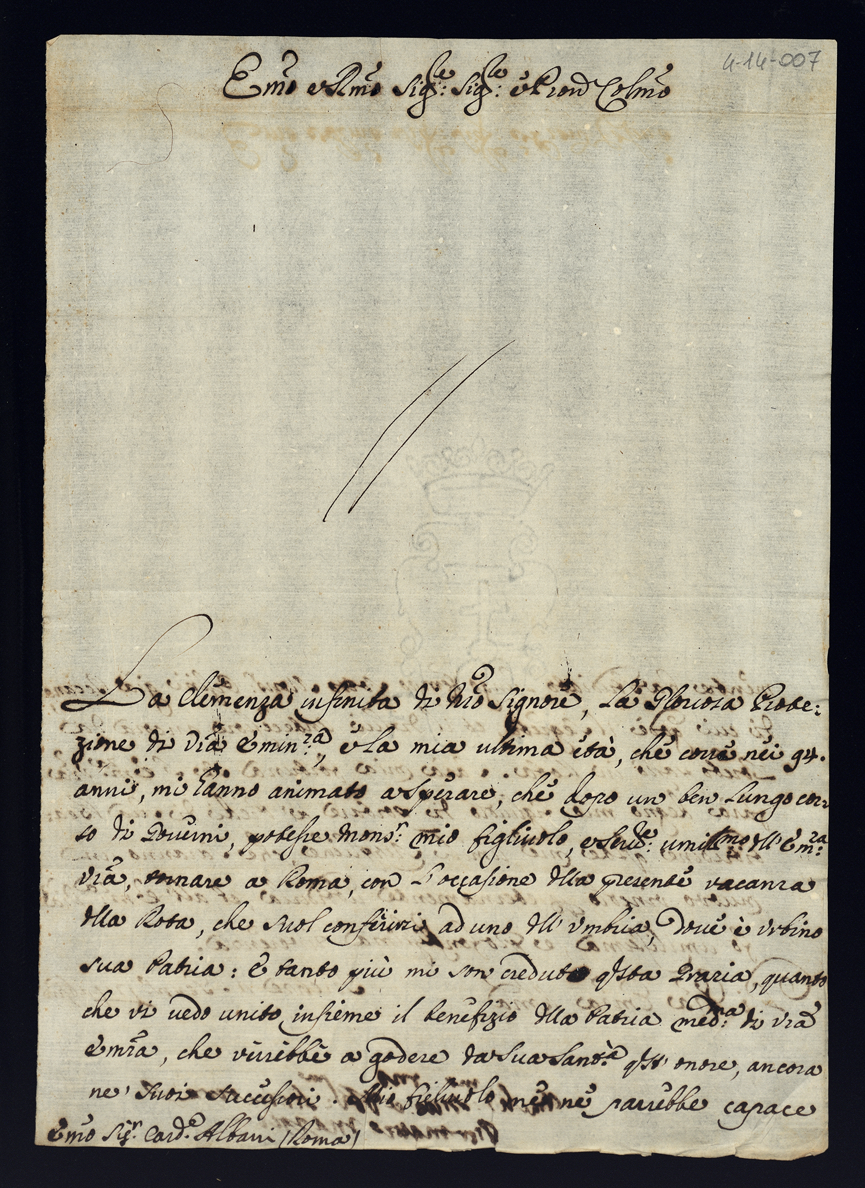 4-14-007
Emo e Rmo Sigre: Sigre: e Pron Colmo
La Clemenza infinita di Nro Signore, La Gloriosa Prote:
zione di Vra Eminza, e la mia ultima età, che corre nei 94.
anni, mi hanno animato a sperare, che dopo un ben lungo cor:
so di Governi, potesse Monsr: mio figliuolo, e Serde: umilmo dll' Emza:
Vra, tornare a Roma, con l'occasione dlla presente vacanza
dlla Rota, che suol conferirsi ad uno dll' Umbria, dove è Urbino
sua Patria: E tanto più mi son creduto qsta Grazia, quanto
che vi vedo unito insieme il benefizio dlla Patria medma: di Vra
Emza, che verrebbe a godere da Sua Santà qst' onore, ancora
ne' suoi successori. Mio figliuolo me ne sarebbe capace
Emo Sigr. Carde Albani (Roma)